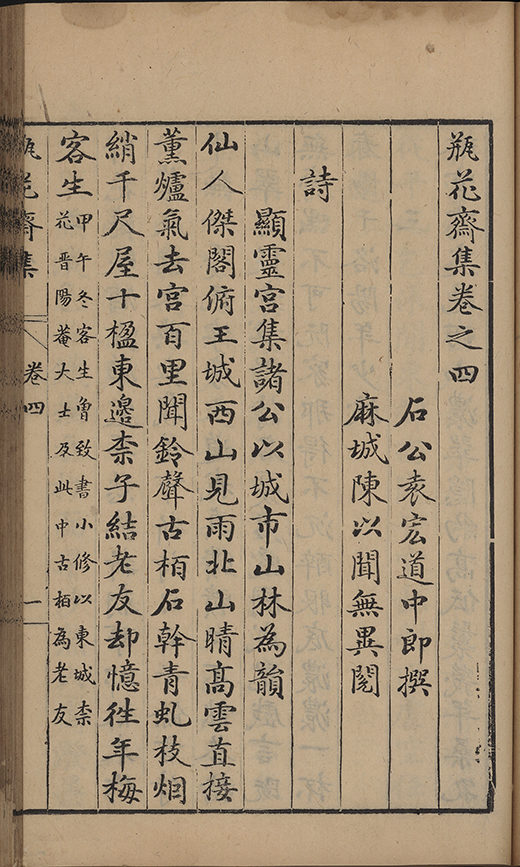 瓶花齋集卷之四
石公袁宏道中郎撰
麻城陳以聞無異閱
詩
顯靈宮集諸公以城市山林為韻
仙人傑閣俯王城西山見雨北山晴高雲直接
薰爐氣去宮百里聞鈴聲古栢石幹青虬枝烟
綃千尺屋十楹東邉柰子結老友却憶徃年梅
客生甲午冬客生魯致書小修以東城柰
花晋陽菴大士及此中古栢為老友
瓶花齋集 卷四 一